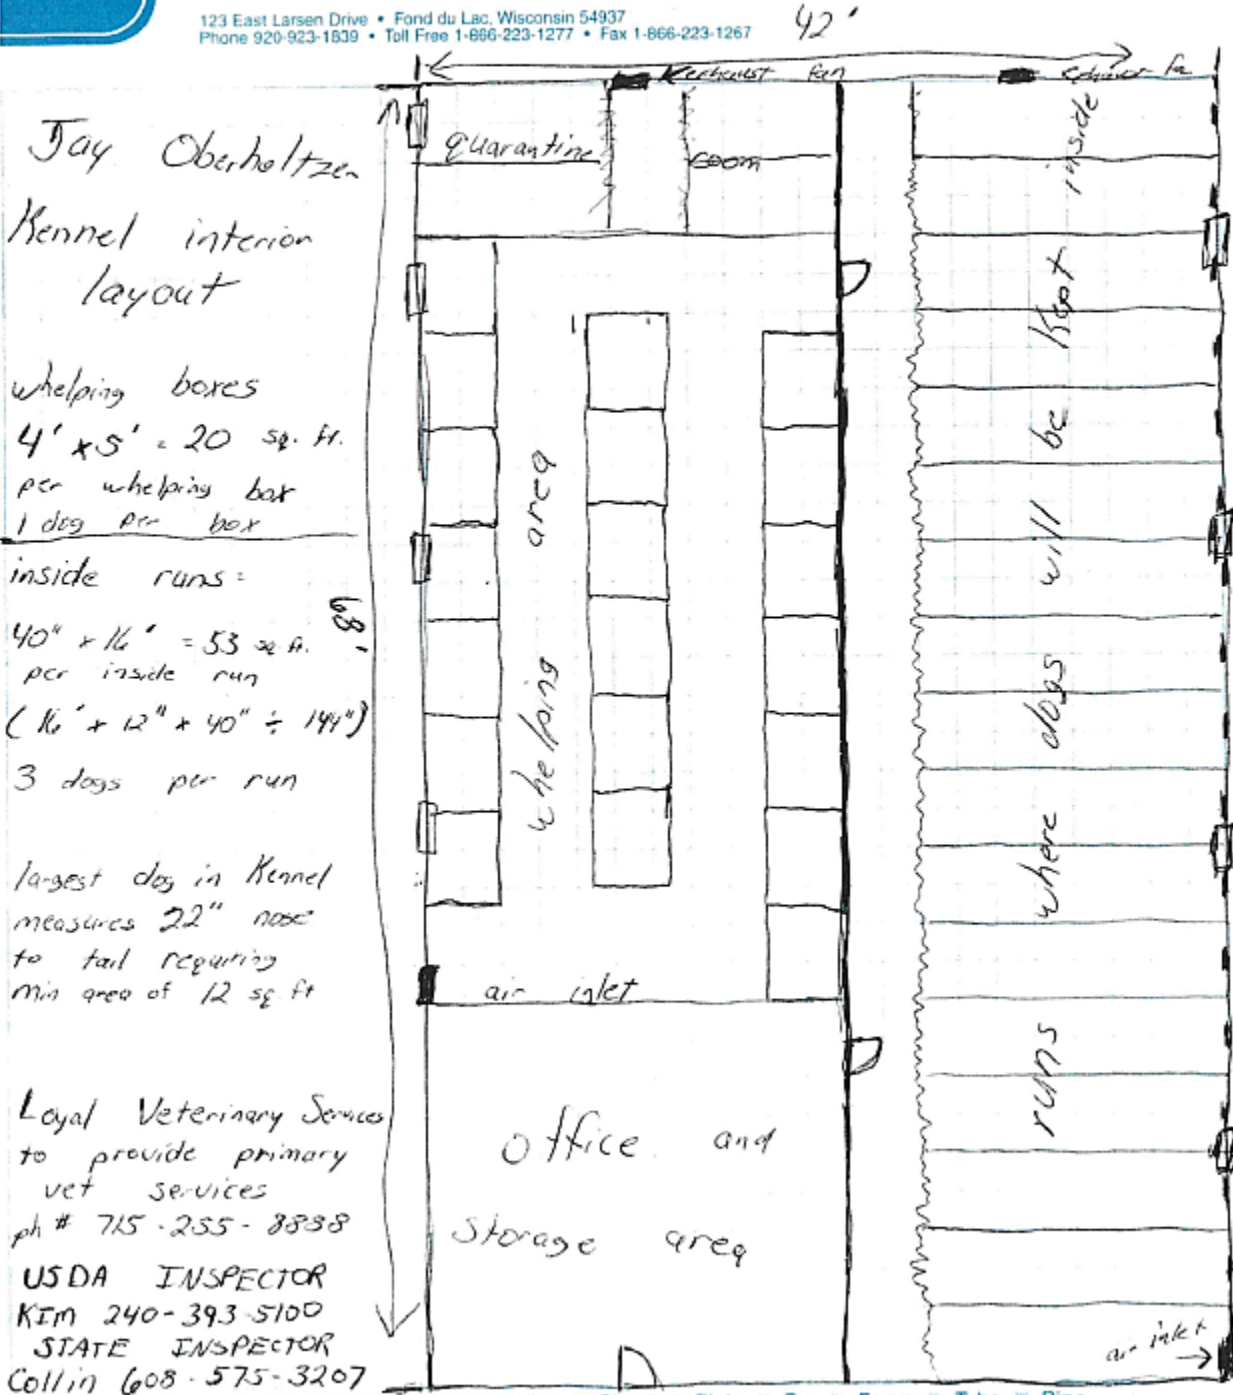 123 East Larsen Drive • Fond du Lac, Wisconsin 54937
Phone 920-923-1839 • Toll Free 1-866-223-1277 • Fax 1-866-223-1267
42'
exhaust fan
Jay Oberholtzer
Kennel interior
layout
whelping boxes
4' x 5' = 20 sq. ft.
per whelping box
1 dog per box
inside runs:
40" x 16' = 53 sq ft.
per inside run
(16' x 12" x 40" ÷ 144")
3 dogs per run
largest dog in Kennel
measures 22" nose
to tail requiring
min area of 12 sq ft
Loyal Veterinary Services
to provide primary
vet services
ph # 715-255-8888
USDA INSPECTOR
KIM 240-393-5100
STATE INSPECTOR
Collin 608-575-3207
68'
quarantine room
whelping area
air inlet
office and
storage area
runs where dogs will be kept inside
air inlet